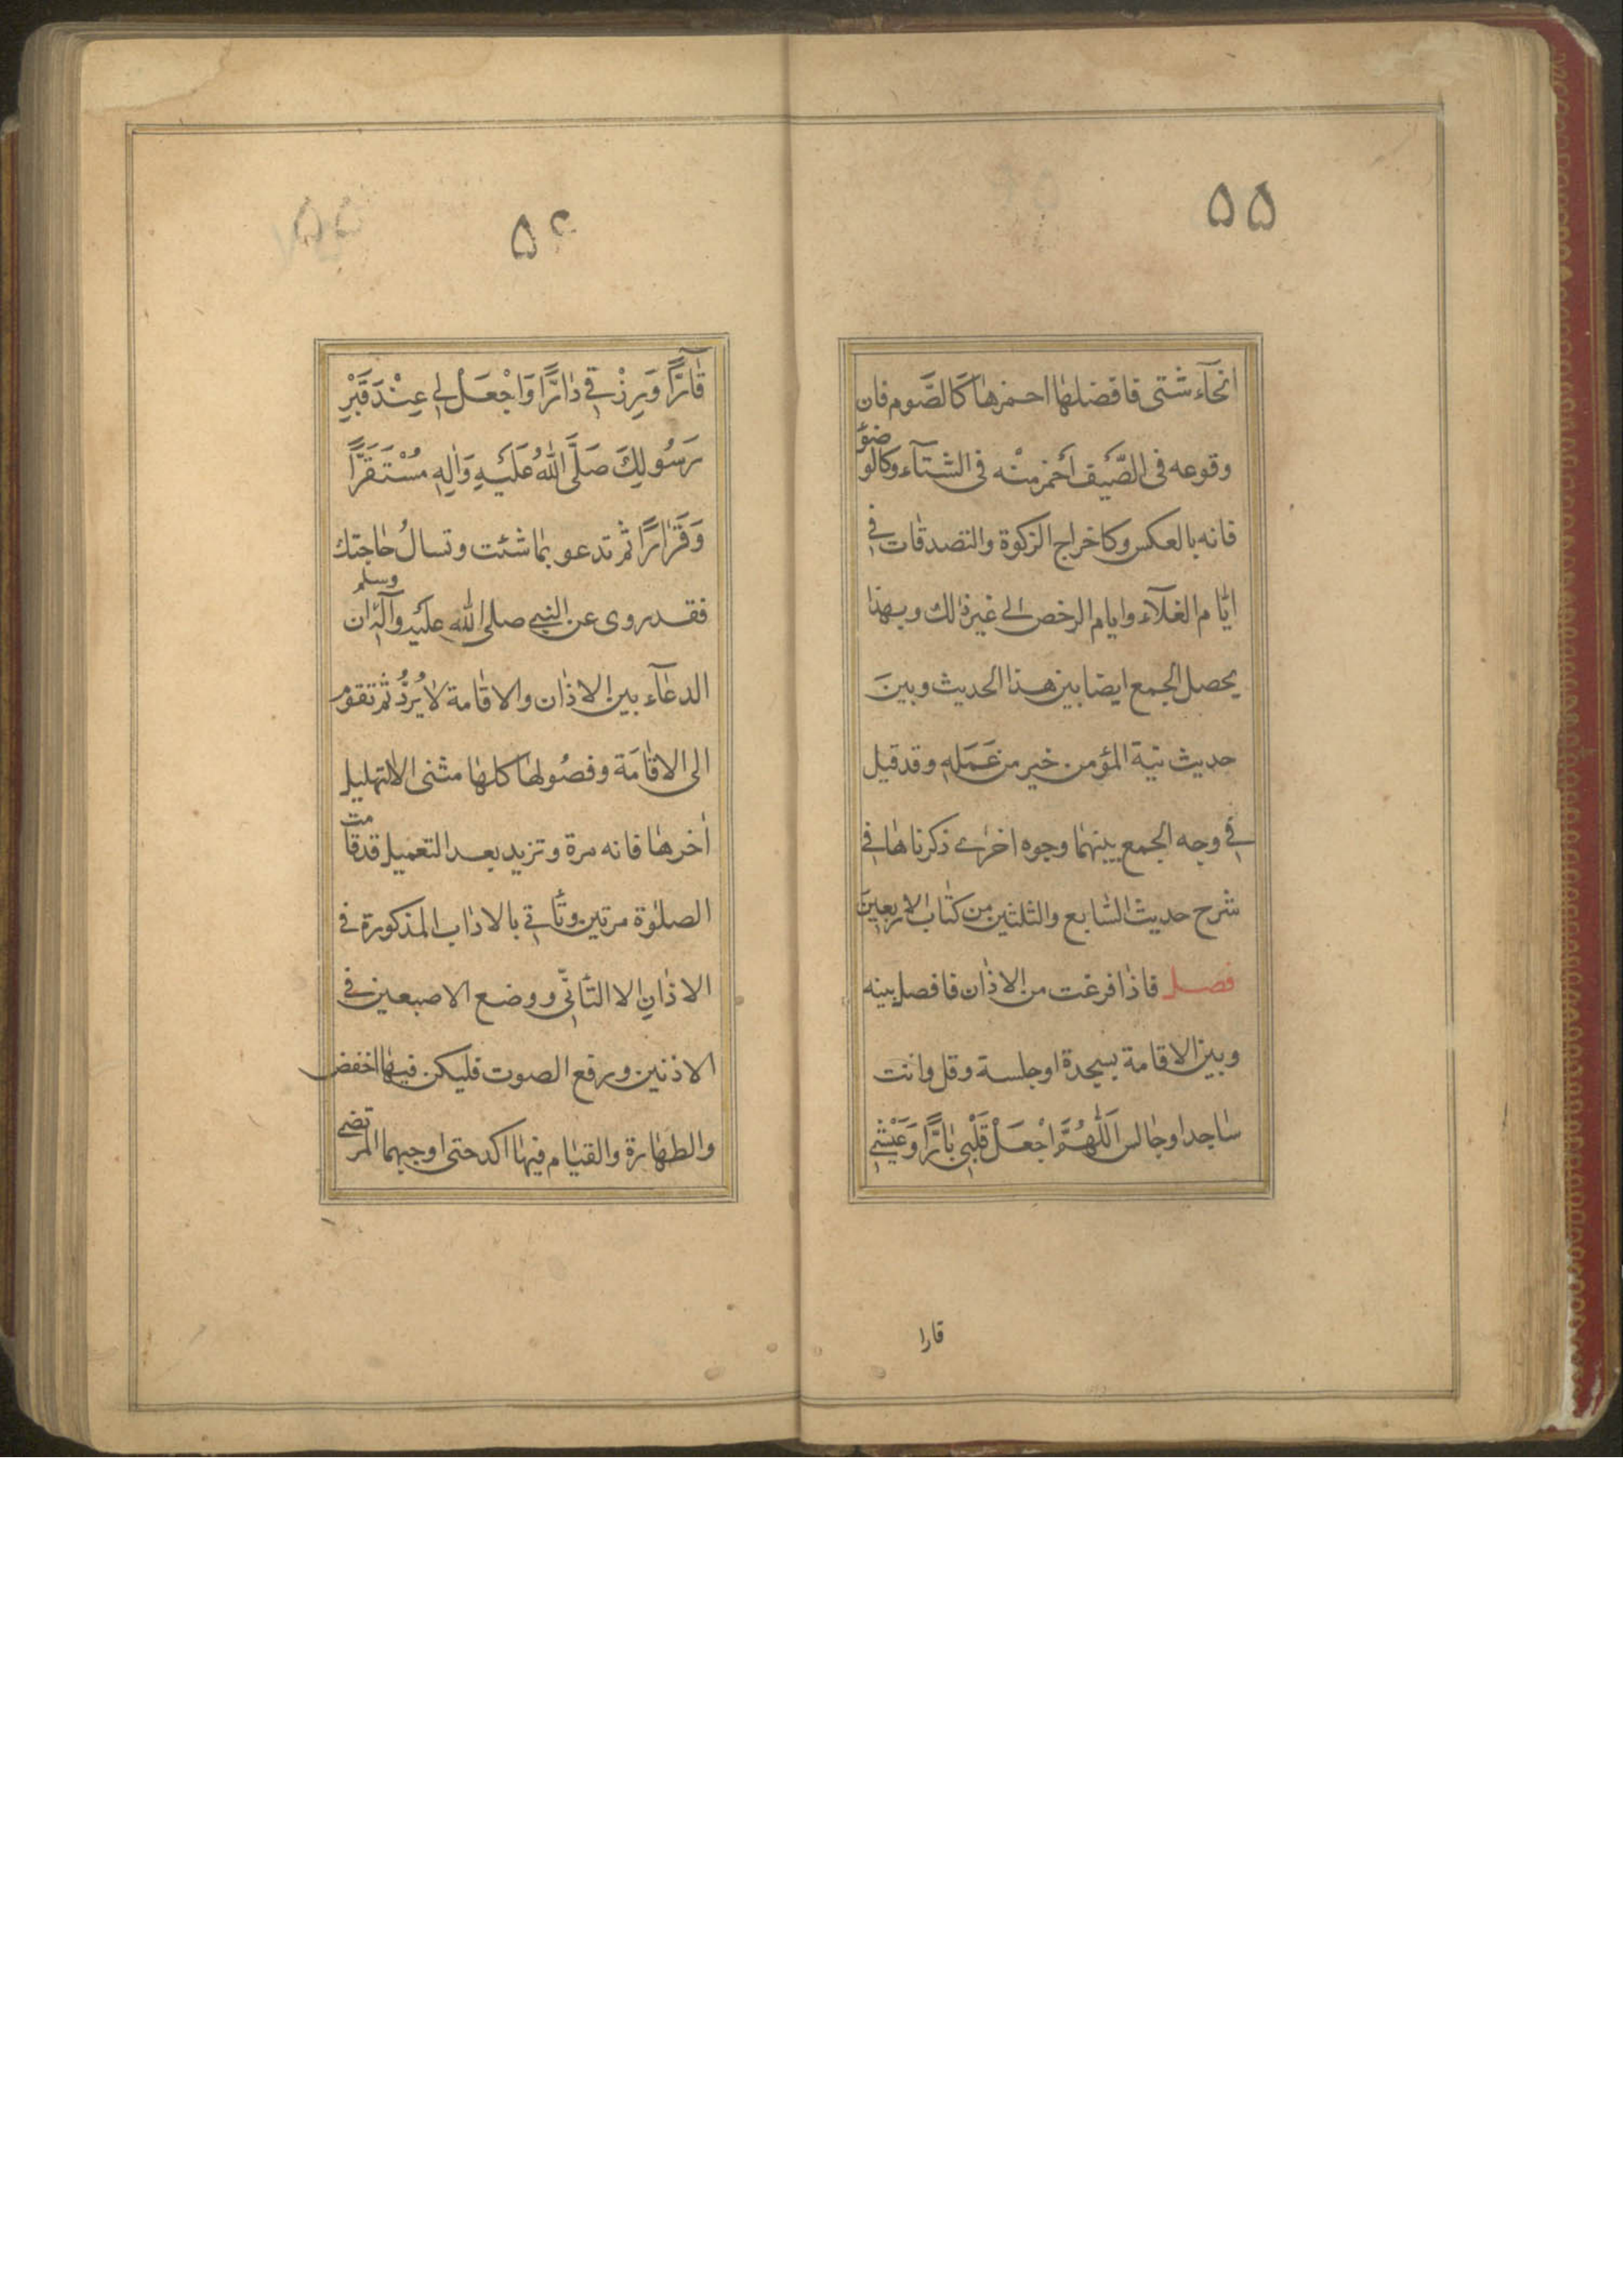 ۵۵
انحآء شتى فافضلها احمزها كالصَّوم فان
وقوعه فى الصَّيف احَمز منْه فى الشتآء وكالوضوٓ
فانه بالعكس وكاخراج الزكوة والتصدقات في
ايّام الغلآء وايام الرخص الى غير ذلك وبهذا
يحصل الجمع ايضا بين هذا الحديث وبين
حديث نية المؤمن خير من عَمَلهِ وقد قيل
في وجه الجمع بينهما وجوه اخرى ذكرناها في
شرح حديث السّابع والثلثين من كتاب الاربعين
فصل فاذا فرغت من الاذان فافصل بينه
وبين الاقامة بسجدة او جلسة وقل وانت
ساجد او جالس اَللّٰهُمَّ اجْعَلْ قَلْبِي بٰارًّا وَعَيْشِي
قارا
۵۶
قٰآرًّا وَرِزْقي دٰارًّا وَاجْعَلْ لي عِنْدَ قَبْرِ
رَسُولِكَ صَلَّى اللّٰهُ عَلَيْهِ وَاٰلِهِ مُسْتَقَرًّا
وَقَرٰارًا ثم تدعو بما شئت وتسالُ حٰاجتك
فقد روى عن النبي صلى اللّٰه عليه وآله وسلم ان
الدعآء بين الاذان والاقامة لا يُرَدُّ ثم تقوم
الى الاقامَة وفصُولها كلها مثنى الا التهليل
اٰخرها فانه مرة وتزيد بعد التعميل قد قامت
الصلوٰة مرتين وتأتي بالاداب المذكورة في
الاذانِ الا التّأنّي ووضع الاصبعين في
الاذنين ورفع الصوت فليكن فيها اخفض
والطهارة والقيام فيها اكد حتى اوجبهما المرتضى